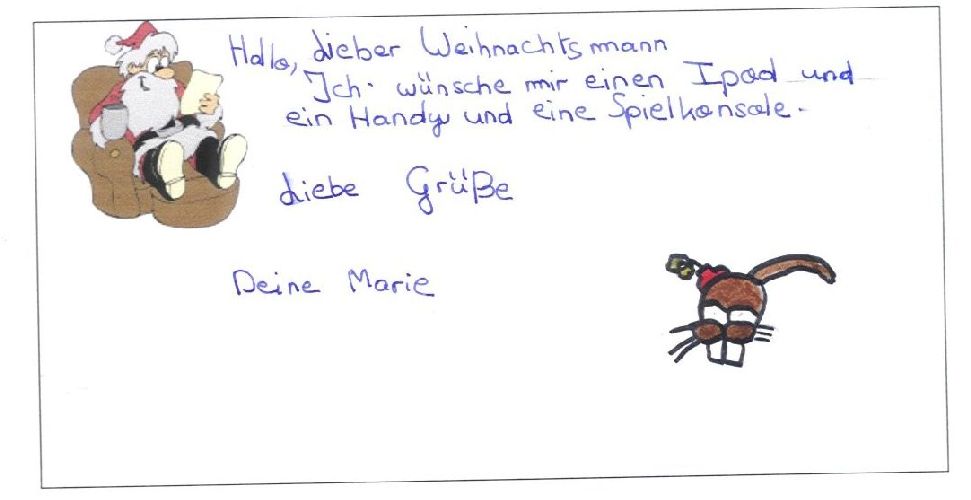 Hallo, lieber Weihnachtsmann
Ich wünsche mir einen Ipad und
ein Handy und eine Spielkonsole.
Liebe Grüße
Deine Marie